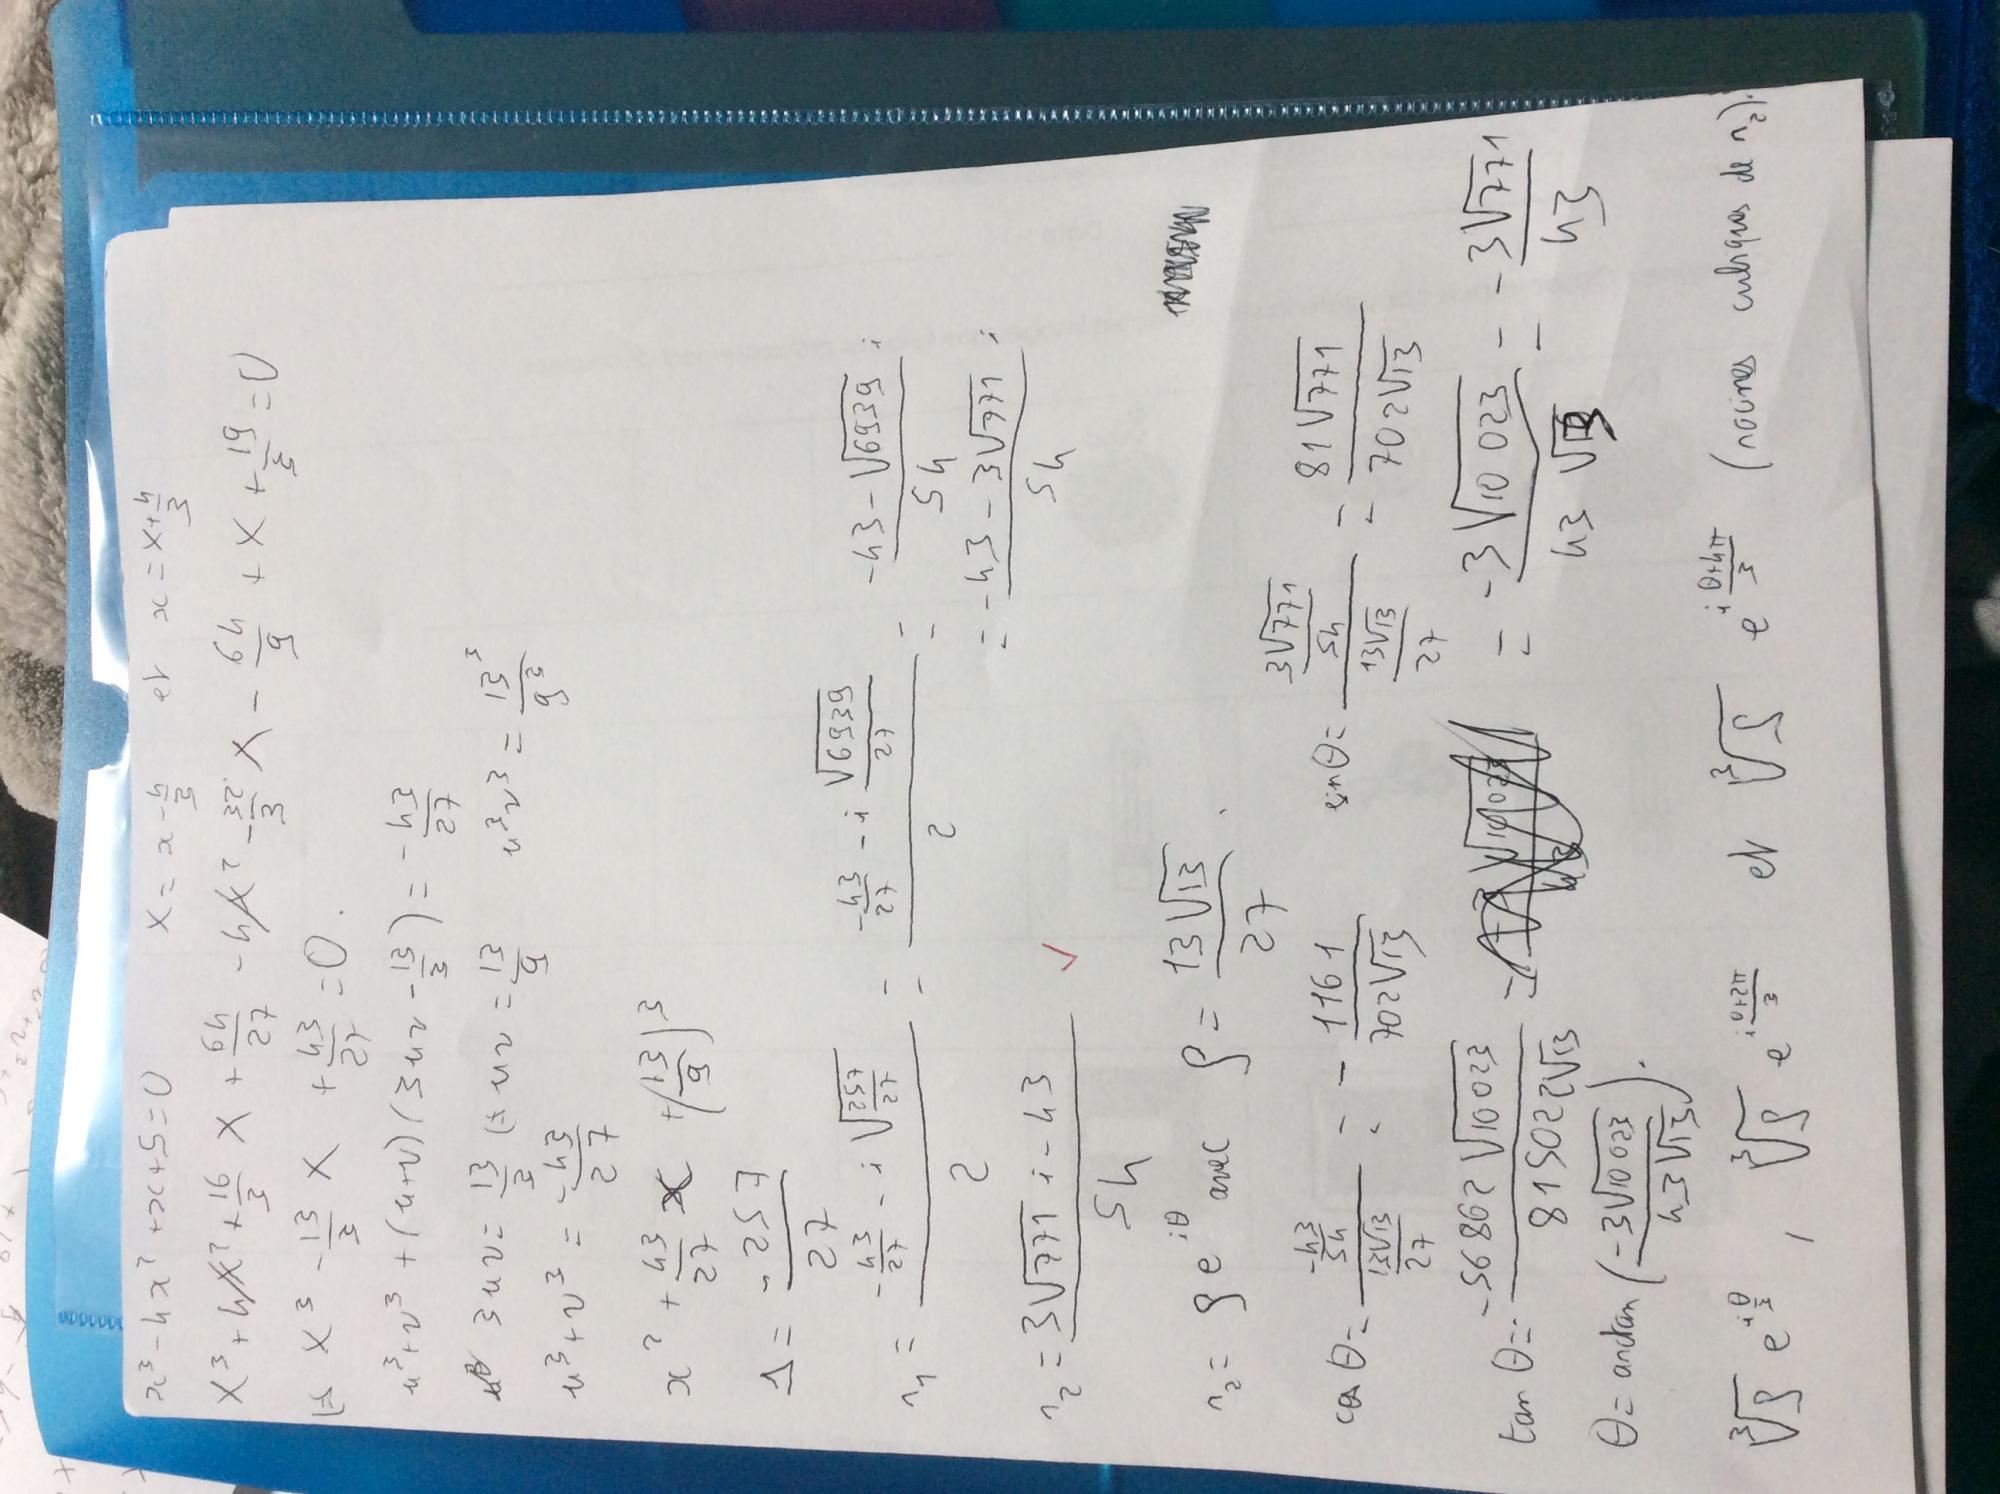 x³ - 4x² + x + 5 = 0    X = x - 4/3 et x = X + 4/3
X³ + 4X² + 16/3 X + 64/27 - 4X² - 32/3 X - 64/9 + X + 19/3 = 0
⇔ X³ - 13/3 X + 43/27 = 0.
u³ + v³ + (u+v)(3uv - 13/3) = - 43/27
3uv = 13/3 ⇔ uv = 13/9    u³v³ = 13³/9³
u³ + v³ = - 43/27
x² + 43/27 x + (13/9)³
Δ = - 257/27
r₁ = (-43/27 - i√(257/27))/2 = (-43/27 - i √6939/27)/2 = (-43 - √6939 i)/54
= (-43 - 3√771 i)/54
r₂ = (3√771 i - 43)/54 ✓
r₂ = ρ e^(iθ) avec ρ = 13√13/27.
cos θ = (-43/54)/(13√13/27) = - 1161/(702√13)    sin θ = (3√771/54)/(13√13/27) = 81√771/(702√13)
tan θ = (-56862√10023)/(815022√13) = - 3√10023/(43√13) = - 3√771/43
θ = arctan(-3√10023/(43√13)).
∛ρ e^(iθ/3), ∛ρ e^(i(θ+2π)/3) et ∛ρ e^(i(θ+4π)/3) (racines cubiques de r₂).